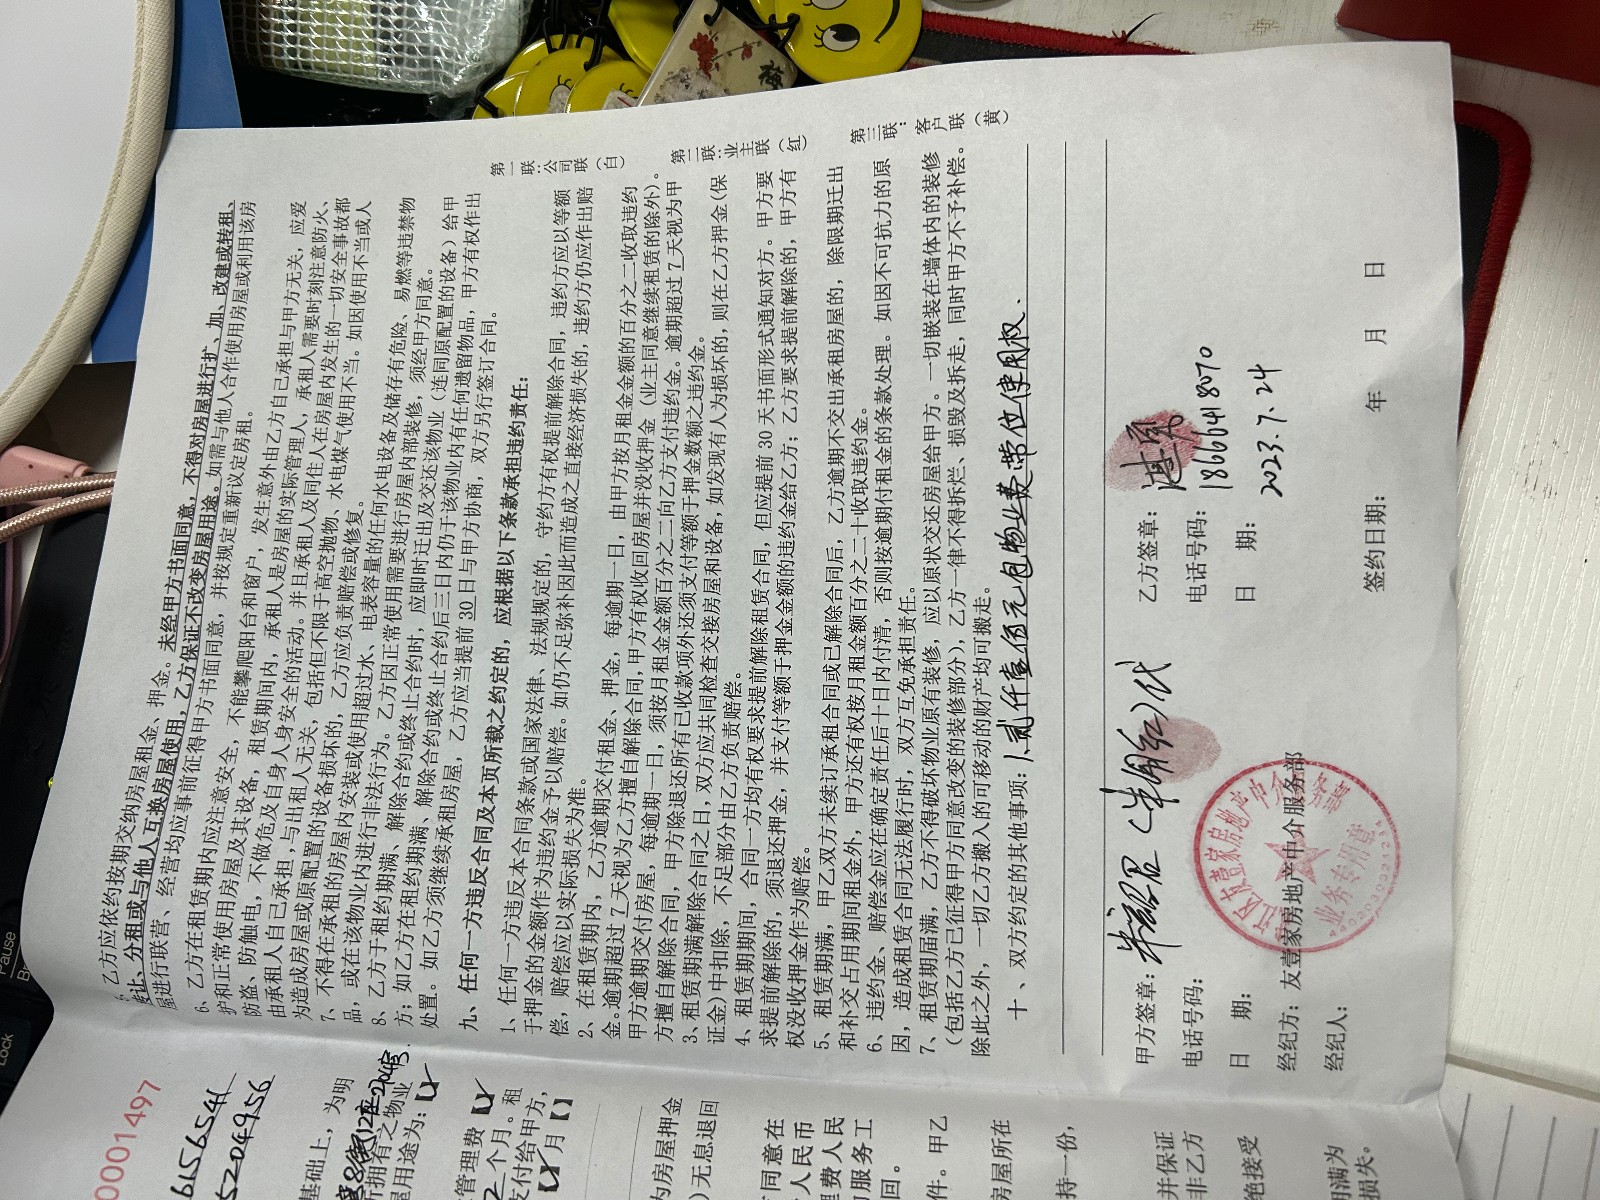 6、乙方应依约按期交纳房屋租金、押金。未经甲方书面同意，不得对房屋进行扩、加、改建或转租、
转让、分租或与他人互换房屋使用，乙方保证不改变房屋用途。如需与他人合作使用房屋或利用该房
屋进行联营、经营均应事前征得甲方书面同意，并按规定重新议定房租。
6、乙方在租赁期内应注意安全，不能攀爬阳台和窗户，发生意外由乙方自己承担与甲方无关，应爱
护和正常使用房屋及其设备，租赁期间内，承租人是房屋的实际管理人，承租人需要时刻注意防火、
防盗、防触电，不做危及自身人身安全的活动。并且承租人及同住人在房屋内发生的一切安全事故都
由承租人自己承担，与出租人无关，包括但不限于高空抛物、水电煤气使用不当。如因使用不当或人
为造成房屋或原配置的设备损坏的，乙方应负责赔偿或修复。
7、不得在承租的房屋内安装或使用超过水、电表容量的任何水电设备及储存有危险、易燃等违禁物
品，或在该物业内进行非法行为。乙方因正常使用需要进行房屋内部装修，须经甲方同意。
8、乙方于租约期满、解除合约或终止合约时，应即时迁出及交还该物业（连同原配置的设备）给甲
方；如乙方在租约期满、解除合约或终止合约后三日内仍于该物业内有任何遗留物品，甲方有权作出
处置。如乙方须继续承租房屋，乙方应当提前 30 日与甲方协商，双方另行签订合同。
九、任何一方违反合同及本页所载之约定的，应根据以下条款承担违约责任：
1、任何一方违反本合同条款或国家法律、法规规定的，守约方有权提前解除合同，违约方应以等额
于押金的金额作为违约金予以赔偿。如仍不足弥补因此而造成之直接经济损失的，违约方仍应作出赔
偿，赔偿应以实际损失为准。
2、在租赁期内，乙方逾期交付租金、押金，每逾期一日，由甲方按月租金金额的百分之二收取违约
金。逾期超过 7 天视为乙方擅自解除合同，甲方有权收回房屋并没收押金（业主同意继续租赁的除外）。
甲方逾期交付房屋，每逾期一日，须按月租金金额百分之二向乙方支付违约金。逾期超过 7 天视为甲
方擅自解除合同，甲方除退还所有已收款项外还须支付等额于押金数额之违约金。
3、租赁期满解除合同之日，双方应共同检查交接房屋和设备，如发现有人为损坏的，则在乙方押金（保
证金）中扣除，不足部分由乙方负责赔偿。
4、租赁期期间，合同一方均有权要求提前解除租赁合同，但应提前 30 天书面形式通知对方。甲方要
求提前解除的，须退还押金，并支付等额于押金金额的违约金给乙方；乙方要求提前解除的，甲方有
权没收押金作为赔偿。
5、租赁期满，甲乙双方未续订承租合同或已解除合同后，乙方逾期不交出承租房屋的，除限期迁出
和补交占用期间租金外，甲方还有权按月租金额百分之二十收取违约金。
6、违约金、赔偿金应在确定责任后十日内付清，否则按逾期付租金的条款处理。如因不可抗力的原
因，造成租赁合同无法履行时，双方互免承担责任。
7、租赁期届满，乙方不得破坏物业原有装修，应以原状交还房屋给甲方。一切嵌装在墙体内的装修
（包括乙方已征得甲方同意改变的装修部分），乙方一律不得拆烂、损毁及拆走，同时甲方不予补偿。
除此之外，一切乙方搬入的可移动的财产均可搬走。
十、双方约定的其他事项：1、贰仟壹佰元包物业费带位使用权、
甲方签章：
乙方签章：
电话号码：
电话号码：18664418070
日 期：
日 期：2023.7.24
经纪方：友壹家房地产中介服务部
经纪人：
签约日期： 年 月 日
第一联：公司联（白）
第二联：业主联（红）
第三联：客户联（黄）
业务专用章
0001497
6156541
5204956
基础上，为明
所拥有之物业
屋用途为：【✓
管理费【✓】
2 个月。租
支付给甲方，
【✓】月【】
为房屋押金
）无息退回
同意在
人民币
费人民
服务工
回。
件。甲乙
房屋所在
持一份，
并保证
非乙方
绝接受
期满为
损失。
Pause
Lock